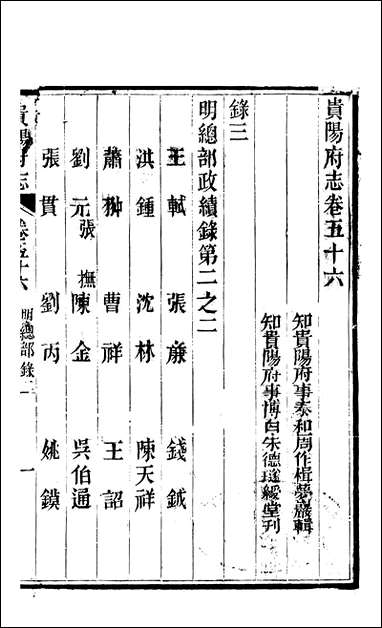 貴陽府志卷五十六
知貴陽府事泰和周作楫夢巖輯
知貴陽府事博白朱德璲緩堂刊
錄三
明總部政績錄第二之二
王軾 張廉 錢鉞
洪鍾 沈林 陳天祥
蕭翀 曹祥 王詔
劉元 張撫 陳金 吳伯通
張貫 劉丙 姚鏌
明總部錄二
一